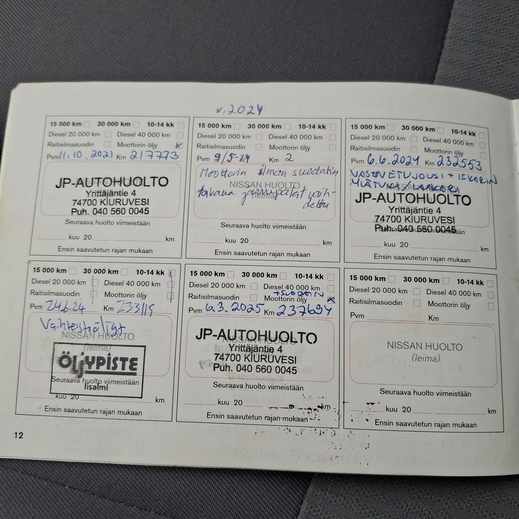 v. 2024
15 000 km 30 000 km 10-14 kk
Diesel 20 000 km Diesel 40 000 km
Raitisilmasuodin Moottorin öljy x
Pvm 11.10.2021 Km 217773
JP-AUTOHUOLTO
Yrittäjäntie 4
74700 KIURUVESI
Puh. 040 560 0045
Seuraava huolto viimeistään
kuu 20 km
Ensin saavutetun rajan mukaan
15 000 km 30 000 km 10-14 kk
Diesel 20 000 km Diesel 40 000 km
Raitisilmasuodin Moottorin öljy
Pvm 9/5-24 Km 2
Moottorin ilman suodatin
NISSAN HUOLTO
takana jarrupalat vaih-
dettu
Seuraava huolto viimeistään
kuu 20 km
Ensin saavutetun rajan mukaan
15 000 km 30 000 km 10-14 kk
Diesel 20 000 km Diesel 40 000 km
Raitisilmasuodin Moottorin öljy
Pvm 6.6.2024 Km 232553
VASEN ETUJOUSI +
JP-AUTOHUOLTO
Yrittäjäntie 4
74700 KIURUVESI
Puh. 040 560 0045
kuu 20 km
Ensin saavutetun rajan mukaan
15 000 km 30 000 km 10-14 kk
Diesel 20 000 km Diesel 40 000 km
Raitisilmasuodin Moottorin öljy
Pvm 24.6.24 Km 233115
Vaihteistoöljyt
NISSAN HUOLTO
(leima)
ÖLJYPISTE
Iisalmi
Seuraava huolto viimeistään
kuu 20 km
Ensin saavutetun rajan mukaan
15 000 km 30 000 km 10-14 kk
Diesel 20 000 km Diesel 40 000 km
+SUODATIN
Raitisilmasuodin Moottorin öljy x
Pvm 6.3.2025 Km 237694
JP-AUTOHUOLTO
Yrittäjäntie 4
74700 KIURUVESI
Puh. 040 560 0045
Seuraava huolto viimeistään
kuu 20 km
Ensin saavutetun rajan mukaan
15 000 km 30 000 km 10-14 kk
Diesel 20 000 km Diesel 40 000 km
Raitisilmasuodin Moottorin öljy
Pvm Km
NISSAN HUOLTO
(leima)
Seuraava huolto viimeistään
kuu 20 km
Ensin saavutetun rajan mukaan
12